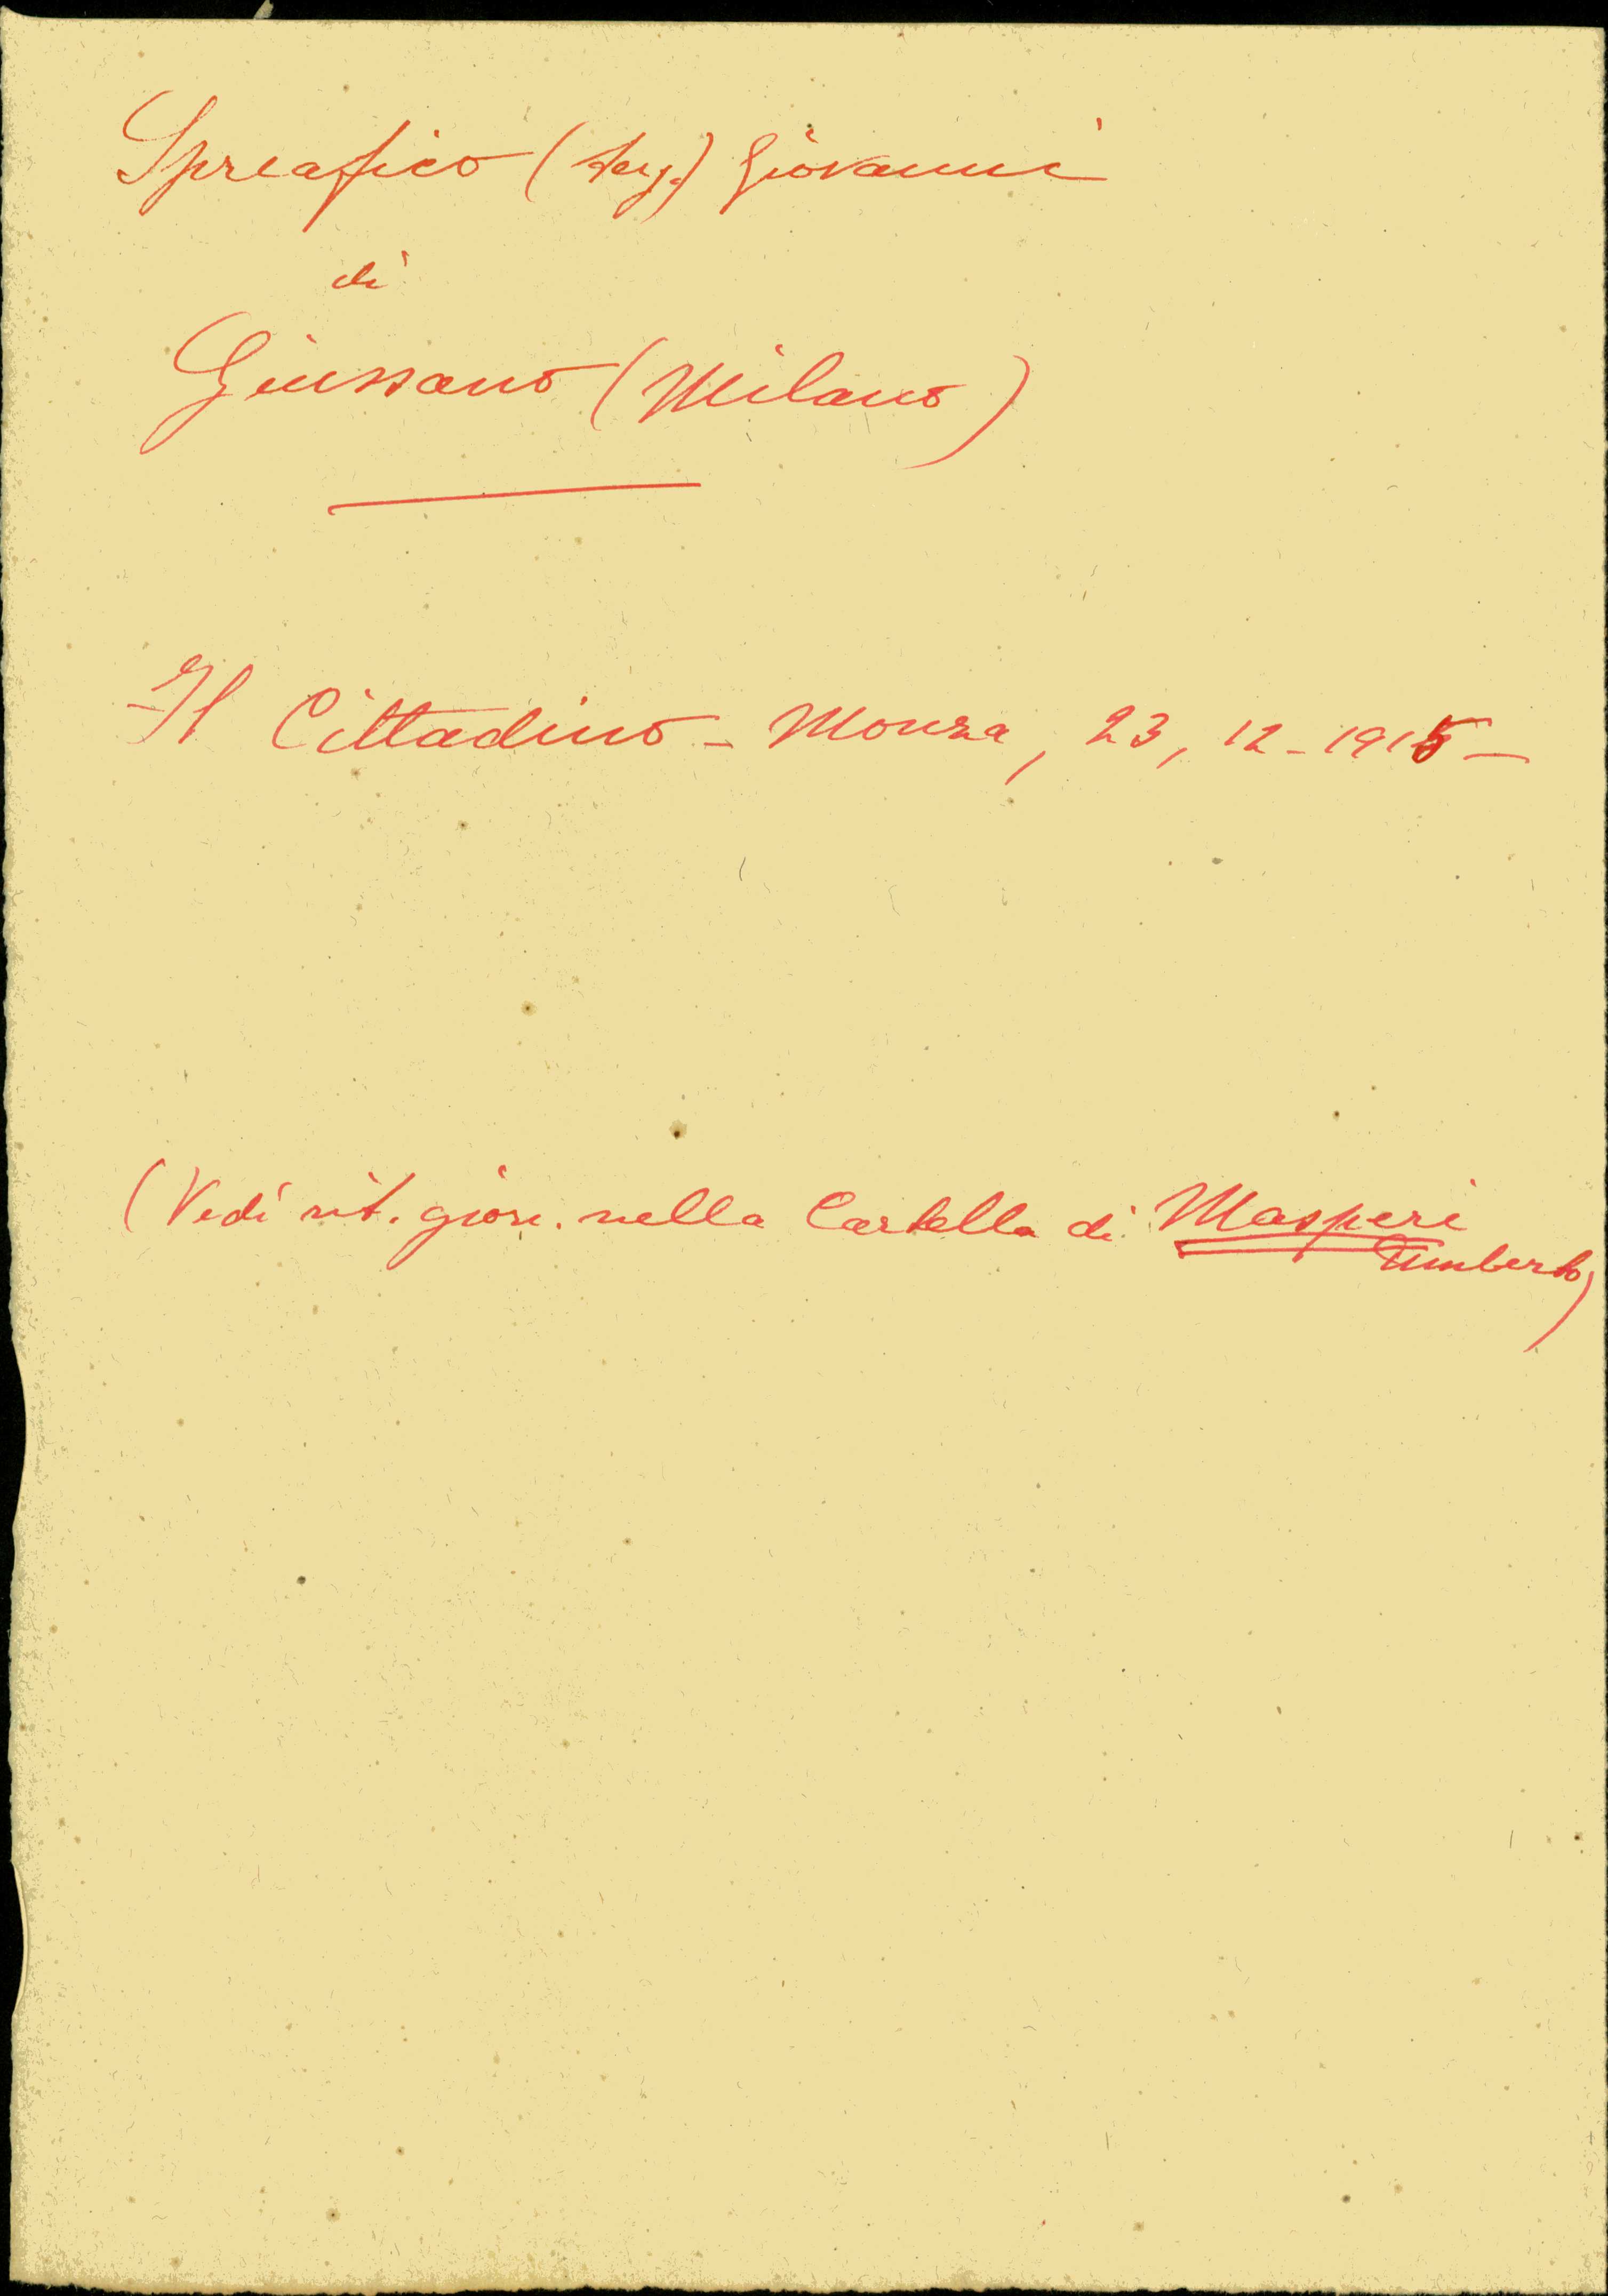 Spreafico (serg.) Giovanni
di
Giussano (Milano)
Il Cittadino - Monza, 23, 12 - 1915 -
(Vedi rit. giorn. nella Cartella di Masperi
Umberto)